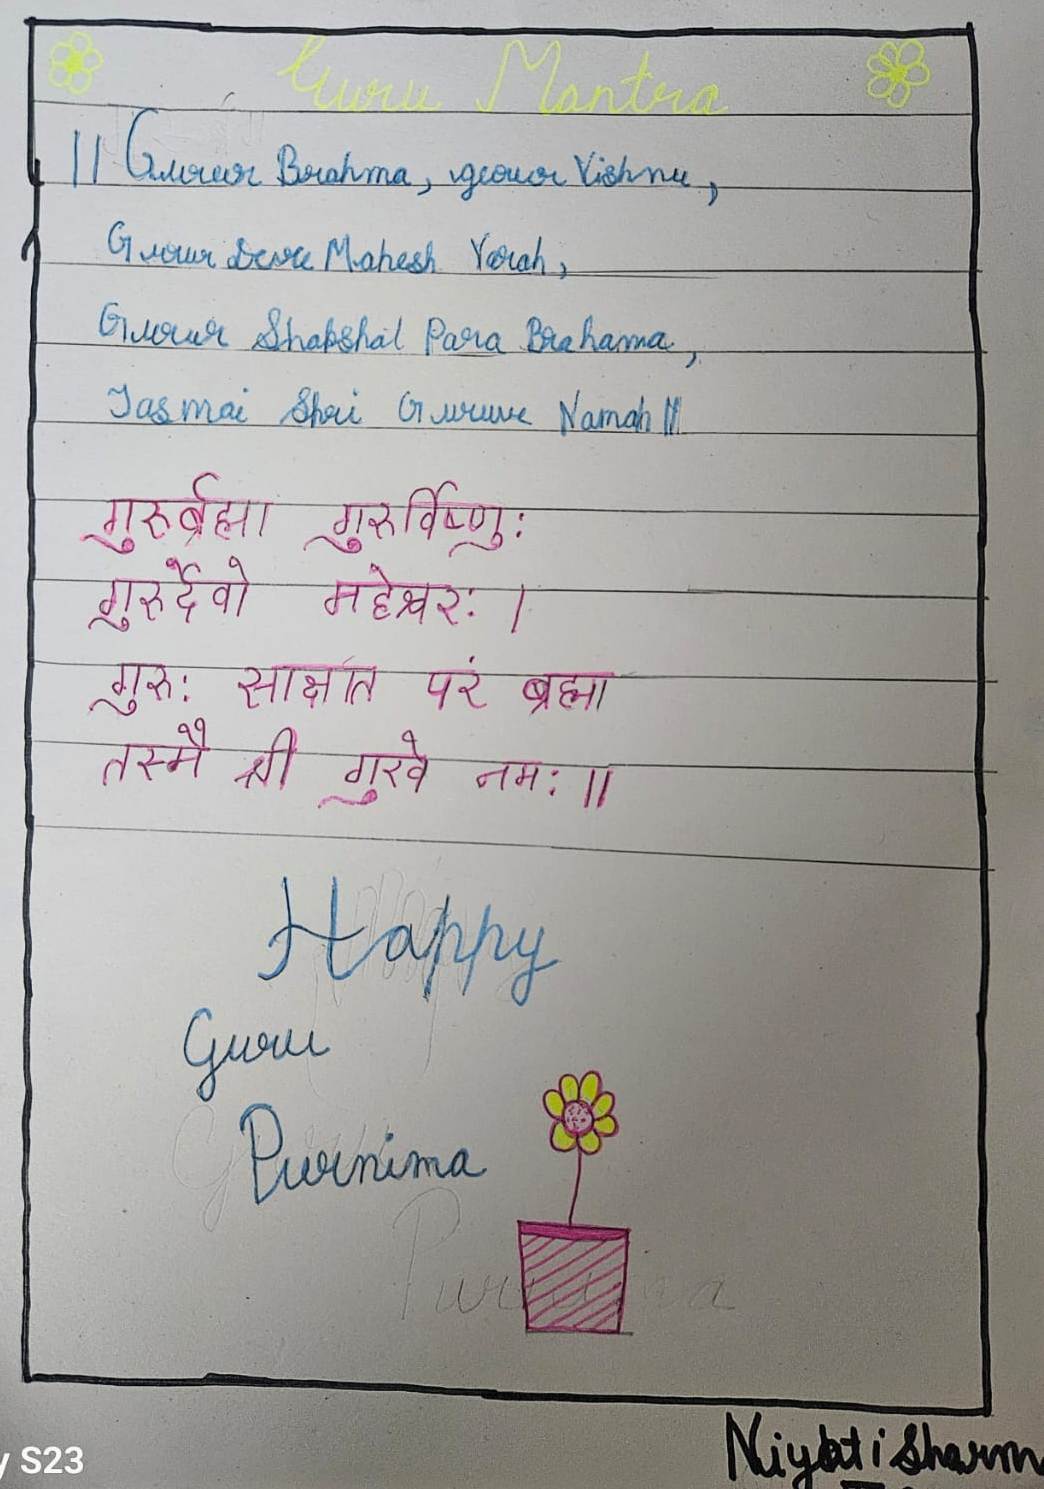 Guru Mantra
|| Gurur Brahma, gurur Vishnu,
Gurur Deve Mahesh Varah,
Gurur Shakshat Para Brahama,
Tasmai Shri Guruve Namah ||
गुरुर्ब्रह्मा गुरुर्विष्णुः
गुरुर्देवो महेश्वरः ।
गुरुः साक्षात परं ब्रह्मा
तस्मै श्री गुरवे नमः ॥
Happy
Guru
Purnima
Purnima
y S23
Niyati Sharm